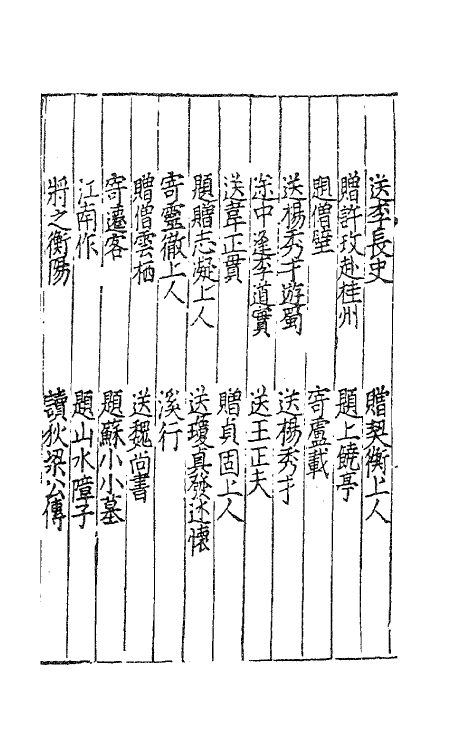 送李長史
贈契衡上人
贈許玫赴桂州
題上饒亭
題僧壁
寄盧載
送楊秀才遊蜀
送楊秀才
途中逢李道實
送王正夫
送韋正貫
贈貞固上人
題贈志凝上人
送瓊貞發述懷
寄靈徹上人
溪行
贈僧雲栖
送魏尚書
寄遷客
題蘇小小墓
江南作
題山水障子
將之衡陽
讀狄梁公傳